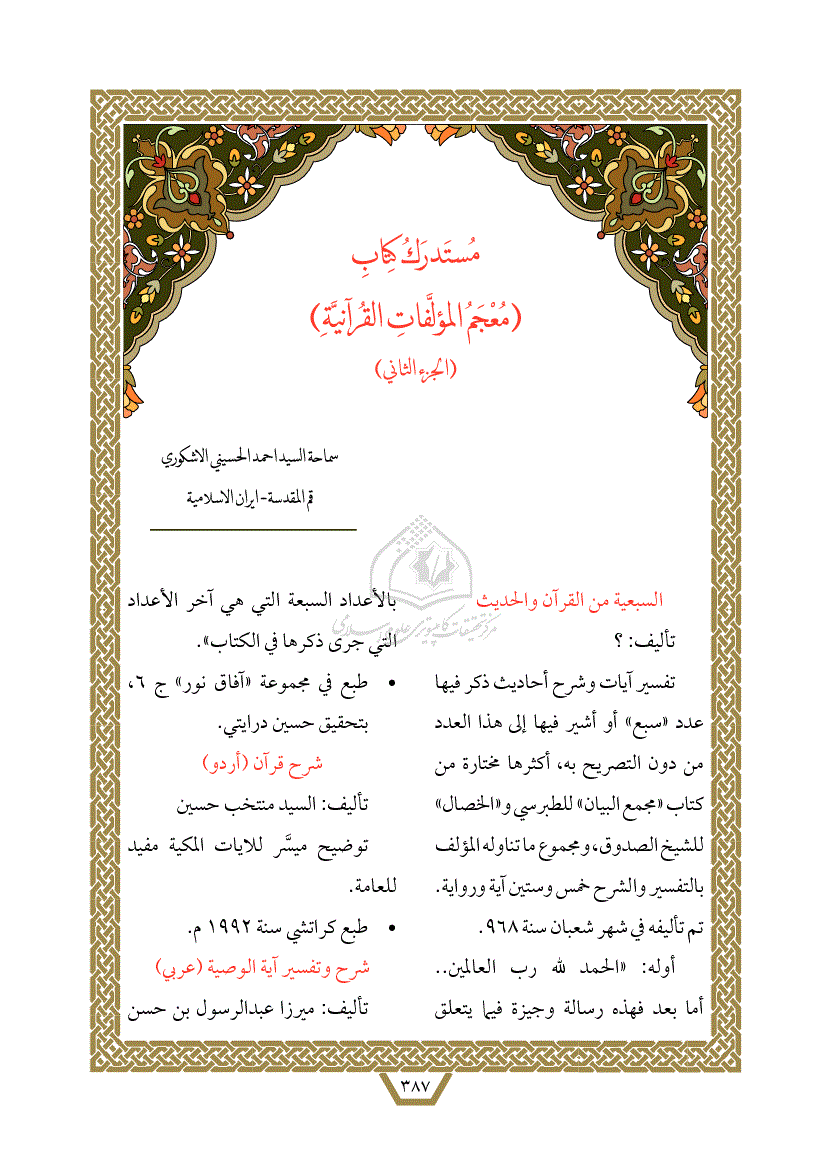 مُستَدرَكُ كِتابِ
(مُعْجَمُ المؤلَّفاتِ القُرآنيَّةِ)
(الجزء الثاني)
سماحة السيد احمد الحسيني الاشكوري
قم المقدسة - ايران الاسلامية
السبعية من القرآن والحديث
تأليف: ؟
تفسير آيات وشرح أحاديث ذكر فيها
عدد «سبع» أو أشير فيها إلى هذا العدد
من دون التصريح به، أكثرها مختارة من
كتاب «مجمع البيان» للطبرسي و«الخصال»
للشيخ الصدوق، ومجموع ما تناوله المؤلف
بالتفسير والشرح خمس وستين آية ورواية.
تم تأليفه في شهر شعبان سنة ٩٦٨.
أوله: «الحمد لله رب العالمين..
أما بعد فهذه رسالة وجيزة فيما يتعلق
بالأعداد السبعة التي هي آخر الأعداد
التي جرى ذكرها في الكتاب».
• طبع في مجموعة «آفاق نور» ج ٦،
بتحقيق حسين درايتي.
شرح قرآن (أردو)
تأليف: السيد منتخب حسين
توضيح ميسَّر للايات المكية مفيد
للعامة.
• طبع كراتشي سنة ١٩٩٢ م.
شرح وتفسير آية الوصية (عربي)
تأليف: ميرزا عبدالرسول بن حسن
مركز تحقيقات كامپيوتری علوم اسلامی
٣٨٧